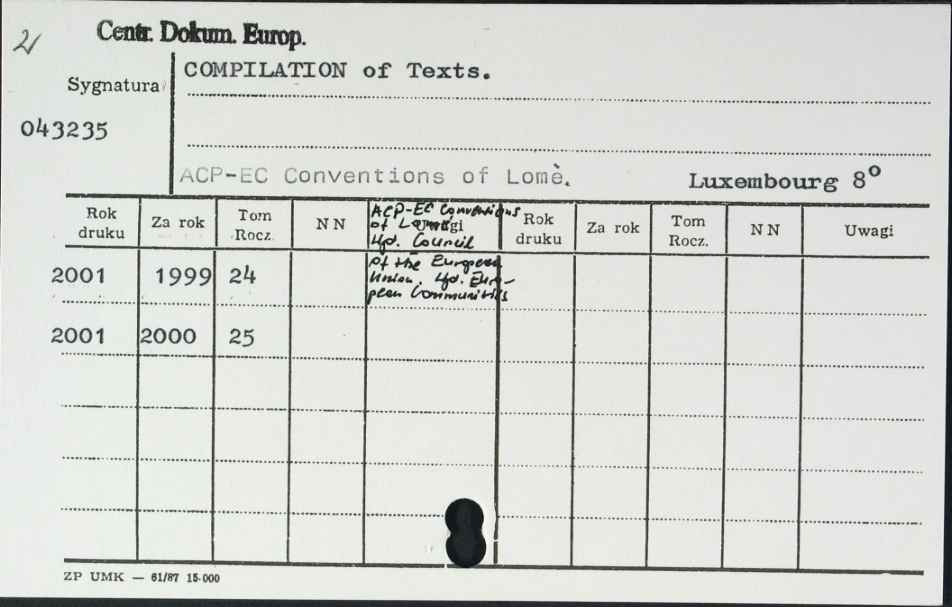 21
Centr. Dokum. Europ.
Sygnatura
COMPILATION of Texts.
043235
ACP-EC Conventions of Lomè. Luxembourg 8°
Rok druku Za rok Tom Rocz. NN Uwagi Rok druku Za rok Tom Rocz. NN Uwagi
ACP-EC Conventions
of Lomé
Wyd. Council
of the European
Union. Wyd. Euro-
pean Communities
2001 1999 24
2001 2000 25
ZP UMK — 61/87 15.000